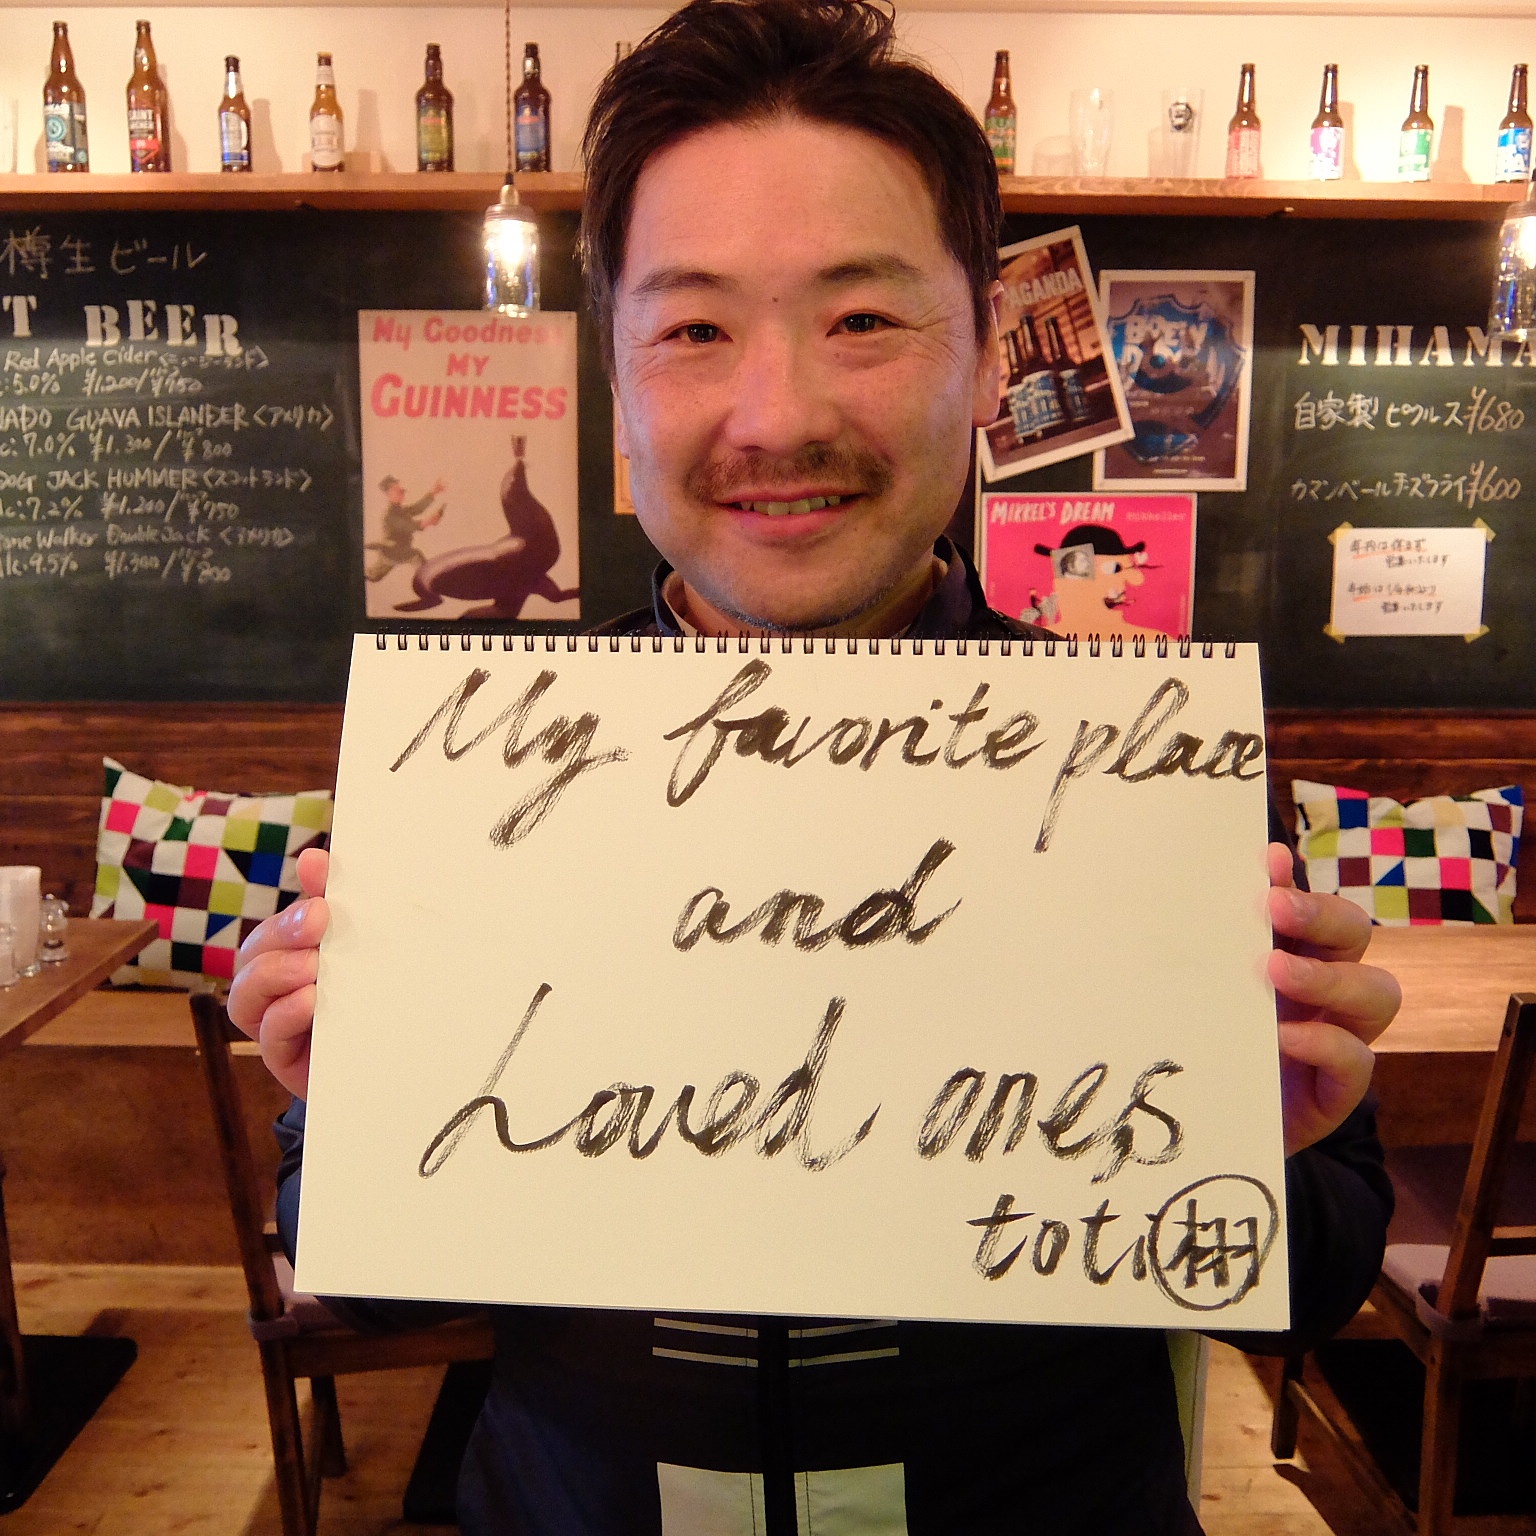 樽生ビール
T BEER
Red Apple Cider
:5.0% ¥1.200/ ¥750
GUAVA ISLANDER <アメリカ>
c:7.0% ¥1.300/ ¥800
DOG JACK HUMMER <スコットランド>
lc:7.2% ¥1.200/ ¥750
Walker Double Jack <アメリカ>
lk:9.5% ¥1.300/
My Goodness
MY
GUINNESS
AGANDA
MIKKEL'S DREAM Mikkeller
MIHAMA
自家製ピクルス ¥680
カマンベールチーズフライ ¥600
My favorite place
and
Loved ones
toti 栩